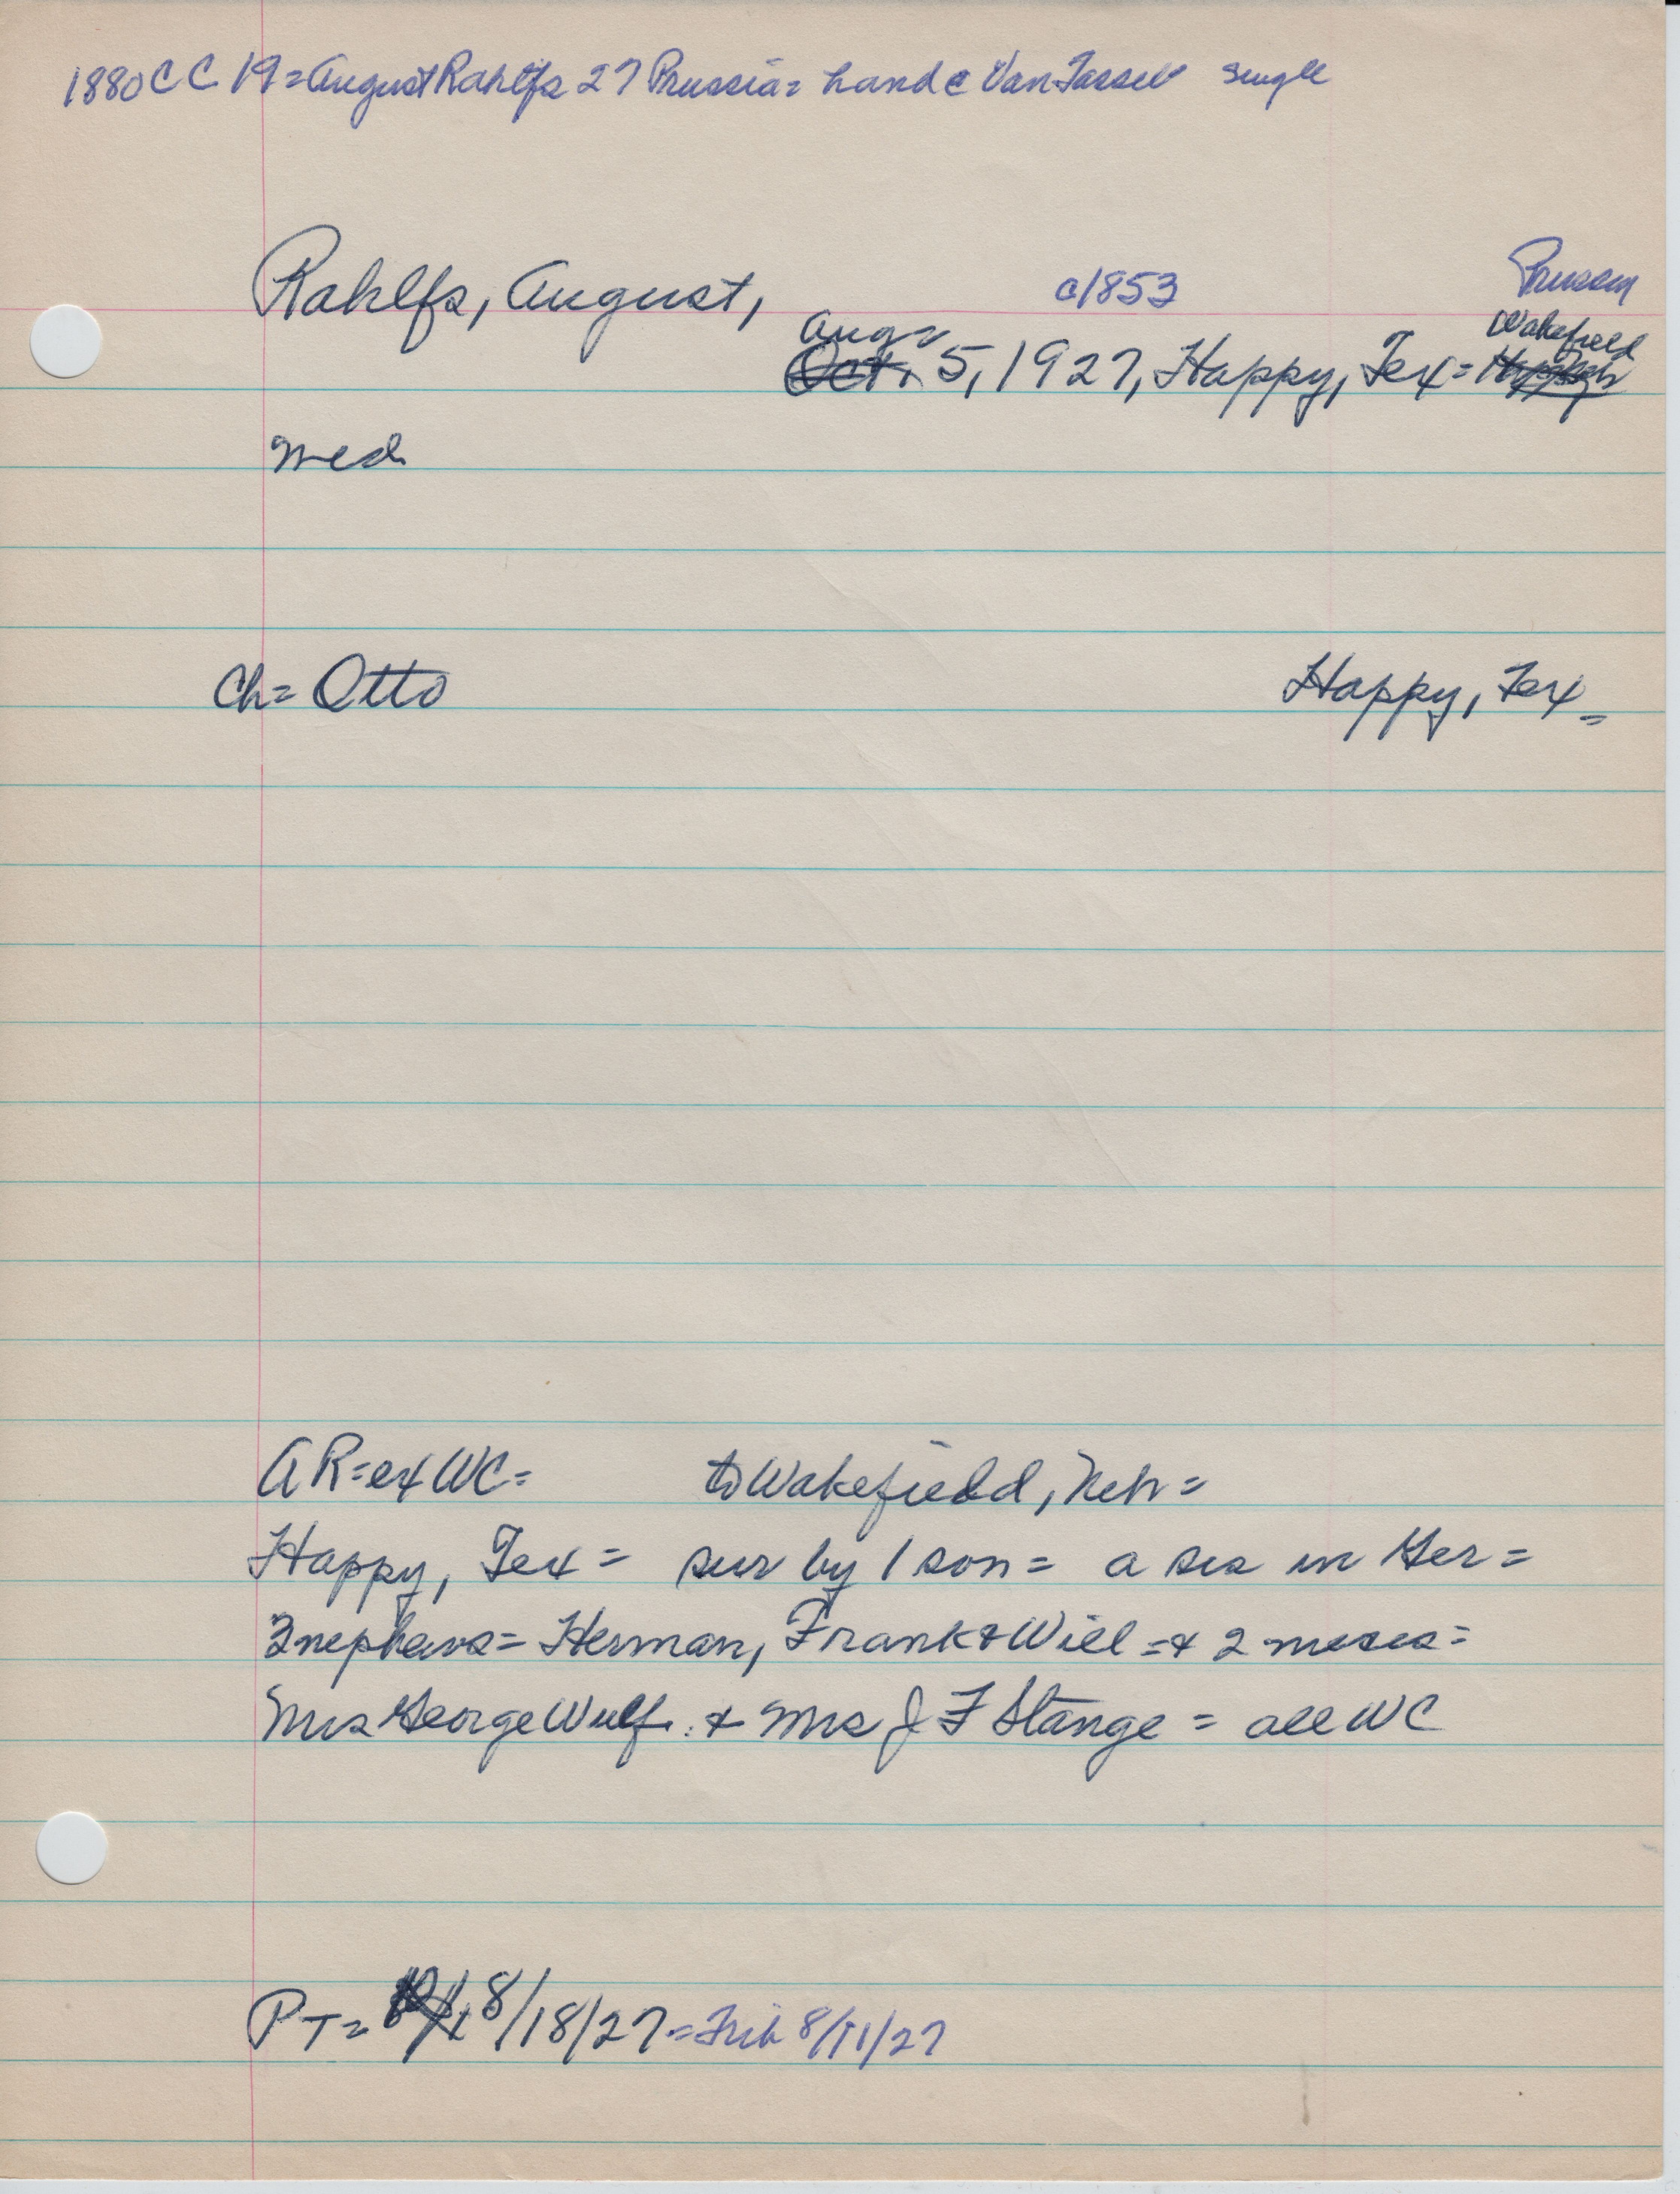 1880 CC 19 = August Rahlfs 27 Prussia = hand c Van Tassel single
Rahlfs, August, c1853 Prussia
Aug = Wakefield
Oct. 5, 1927, Happy, Tex =
Med
Ch = Otto Happy, Tex =
AR = ex WC = to Wakefield, Neb =
Happy, Tex = sur by 1 son = a sis in Ger =
3 nephews = Herman, Frank & Will = & 2 nieces =
Mrs George Wulf. & Mrs J F Stange = all WC
PT = 8/18/27 = Trib 8/11/27